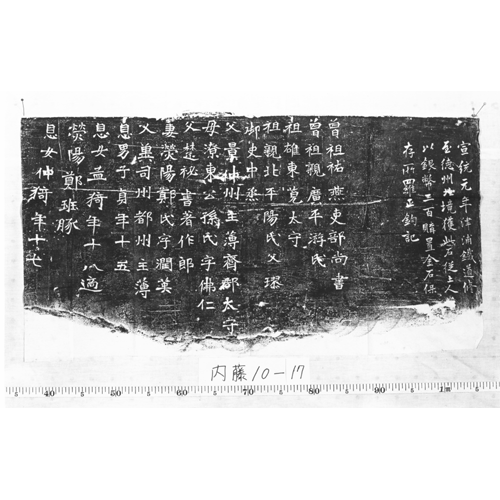 宣統元年津浦鐵道修
至德州北境獲此石從土人
以銀幣三百購置金石保
存所 羅正鈞記
曾祖祐燕吏部尚書
曾祖親廣平游氏
祖雄東莞太守
祖親北平陽氏父璆
御史中丞
父景仲州主簿齊郡太守
母遼東公孫氏字佛仁
父楚祕書著作郎
妻熒陽鄭氏字潤英
父萬司州都州主簿
息男子貞年十五
息女孟猗年十八適
熒陽鄭班豚
息女仲猗年十七
内藤10-17
40 50 60 70 80 90 1m